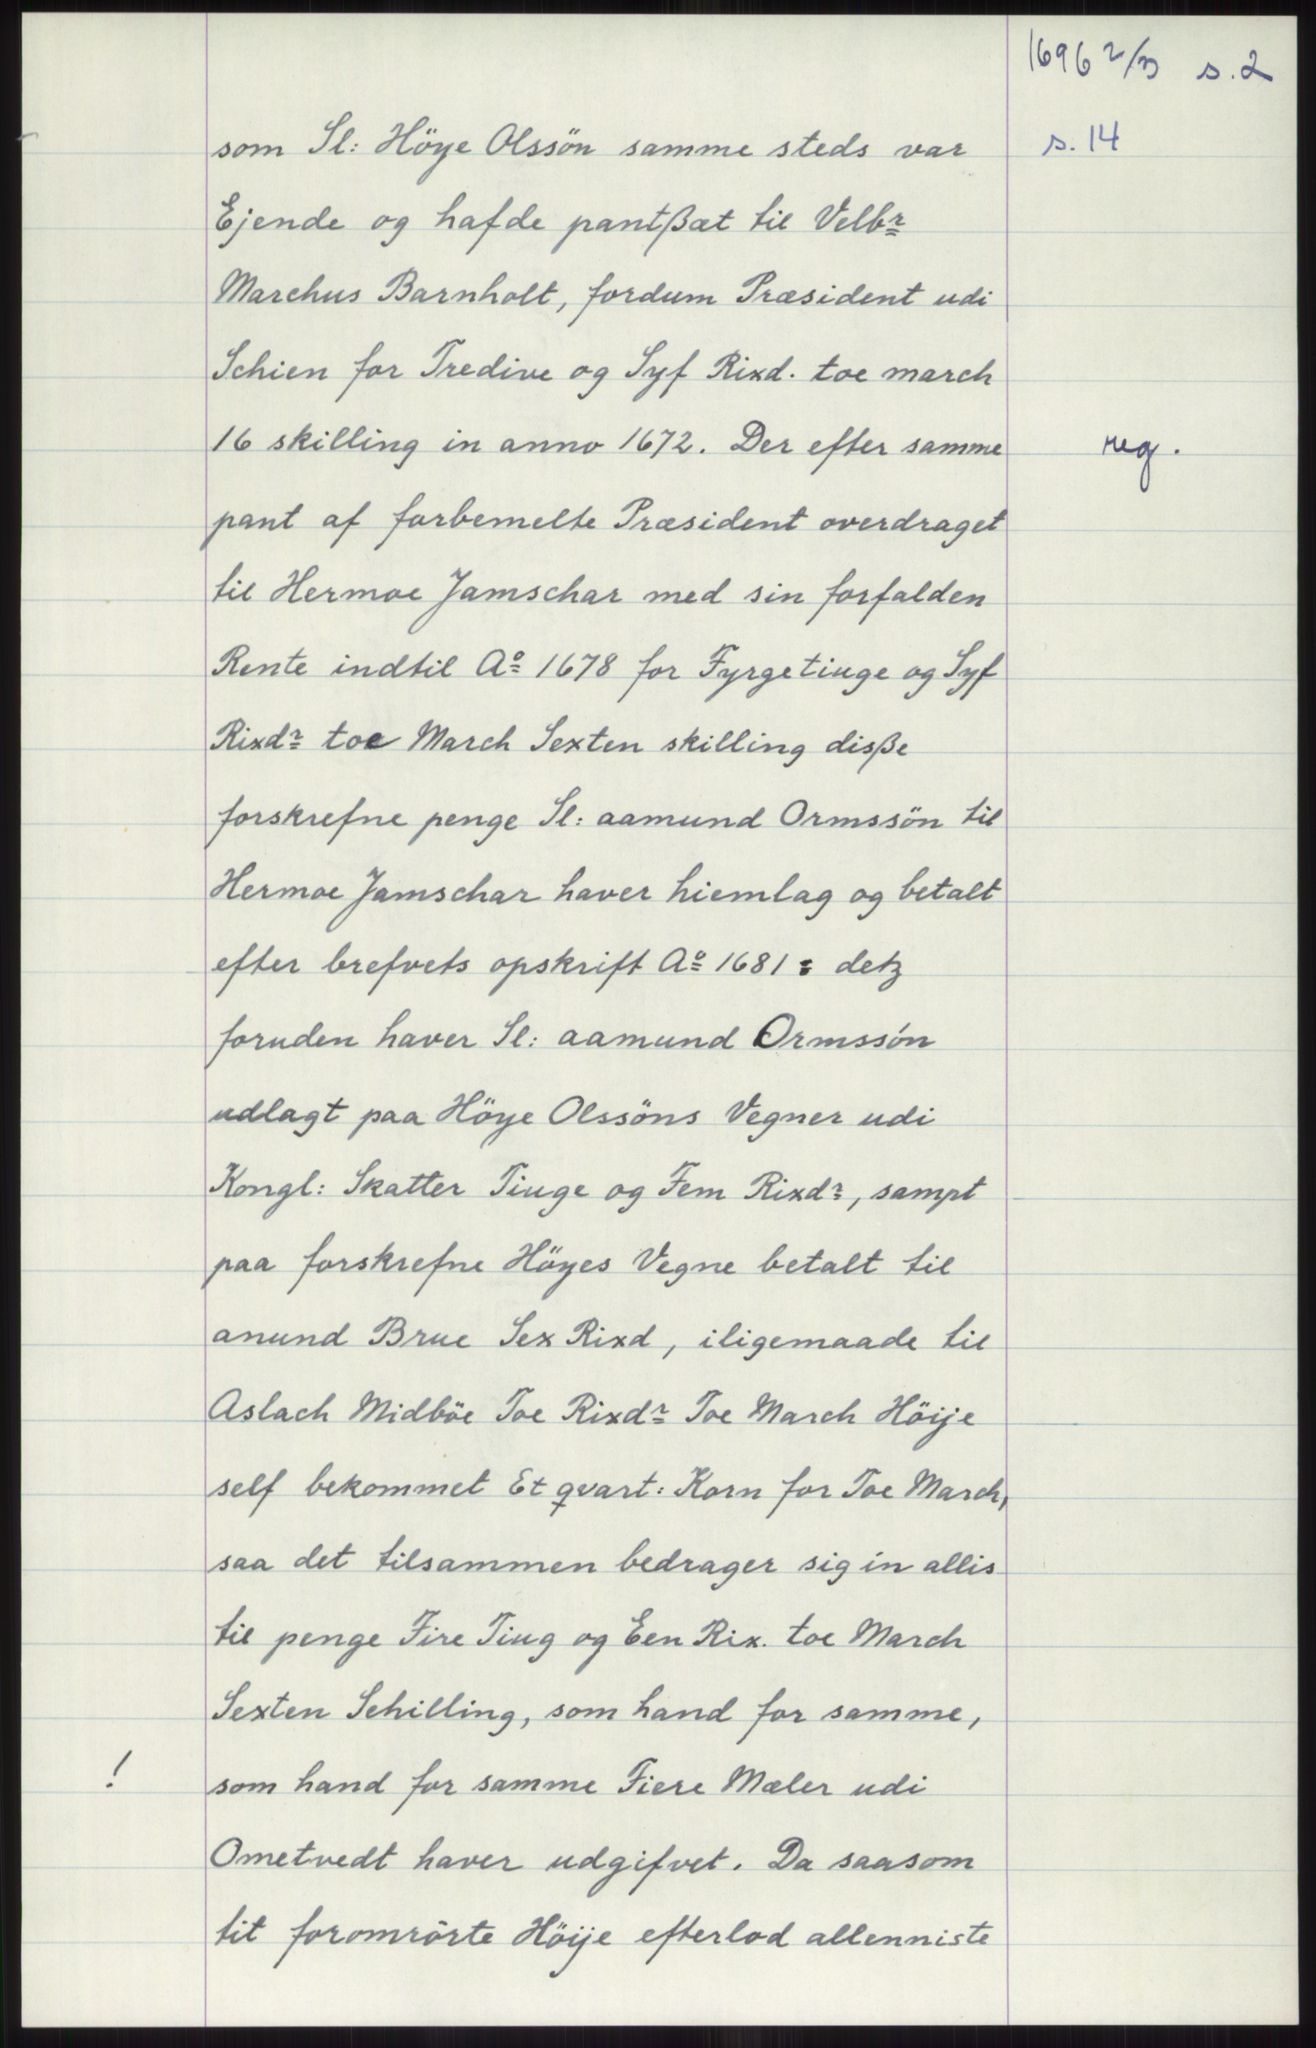 1696 2/3 s. 2
som Sl: Höye Olssön samme steds var s. 14
Ejende og hafde pantßæt til Velbr
Marchus Barnholt, fordum Præsident udi
Schien for Tredive og Syf Rixd. toe march
16 skilling in anno 1672. Der efter samme reg.
pant af forbemelte Præsident overdraget
til Hermoe Jamschar med sin forfalden
Rente indtil Ao 1678 for Fyrgetiuge og Syf
Rixdr toe March Sexten skilling disße
forskrefne penge Sl: aamund Ormssön til
Hermoe Jamschar haver hiemlag og betalt
efter brefvets opskrift Ao 1681: detz
foruden haver Sl: aamund Ormssön
udlagt paa Höye Olssöns Vegner udi
Kongl: Skatter Tiuge og Fem Rixdr, sampt
paa forskrefne Höyes Vegne betalt til
anund Brue Sex Rixd, iligemaade til
Aslach Midböe Toe Rixdr Toe March Höije
self bekommet Et qvart: Korn for Toe March,
saa det tilsammen bedrager sig in allis
til penge Fire Tiug og Een Rix. toe March
Sexten Schilling, som hand for samme,
! som hand for samme Fiere Mæler udi
Ometvedt haver udgifvet. Da saasom
tit foromrörte Höije efterlod allenniste